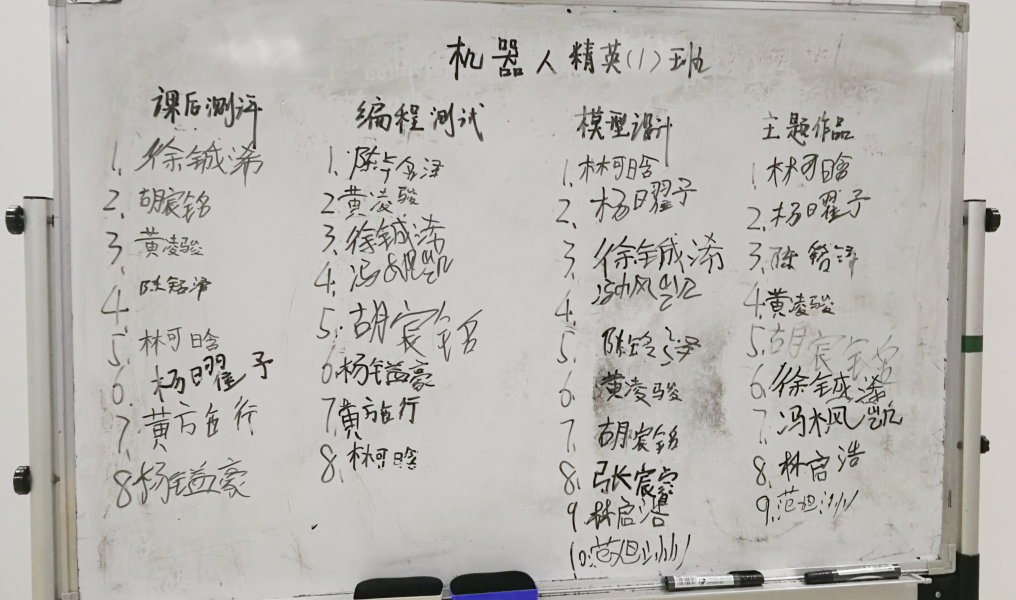 机器人精英(1)班
课后测评
1. 徐铖浠
2. 胡宸铭
3. 黄凌骏
4. 陈铭泽
5. 林可晗
6. 杨曜予
7. 黄方行
8. 杨镒豪
编程测试
1. 陈泽
2. 黄凌骏
3. 徐铖浠
4. 冯凯
5. 胡宸铭
6. 杨镒豪
7. 黄方行
8. 林可晗
模型设计
1. 林可晗
2. 杨曜予
3. 徐铖浠
4. 冯凯
5. 陈
6. 黄凌骏
7. 胡宸铭
8. 张宸宾
9. 林启浩
10. 范
主题作品
1. 林可晗
2. 杨曜予
3. 陈泽
4. 黄凌骏
5. 胡宸铭
6. 徐铖浠
7. 冯凯
8. 林启浩
9. 范